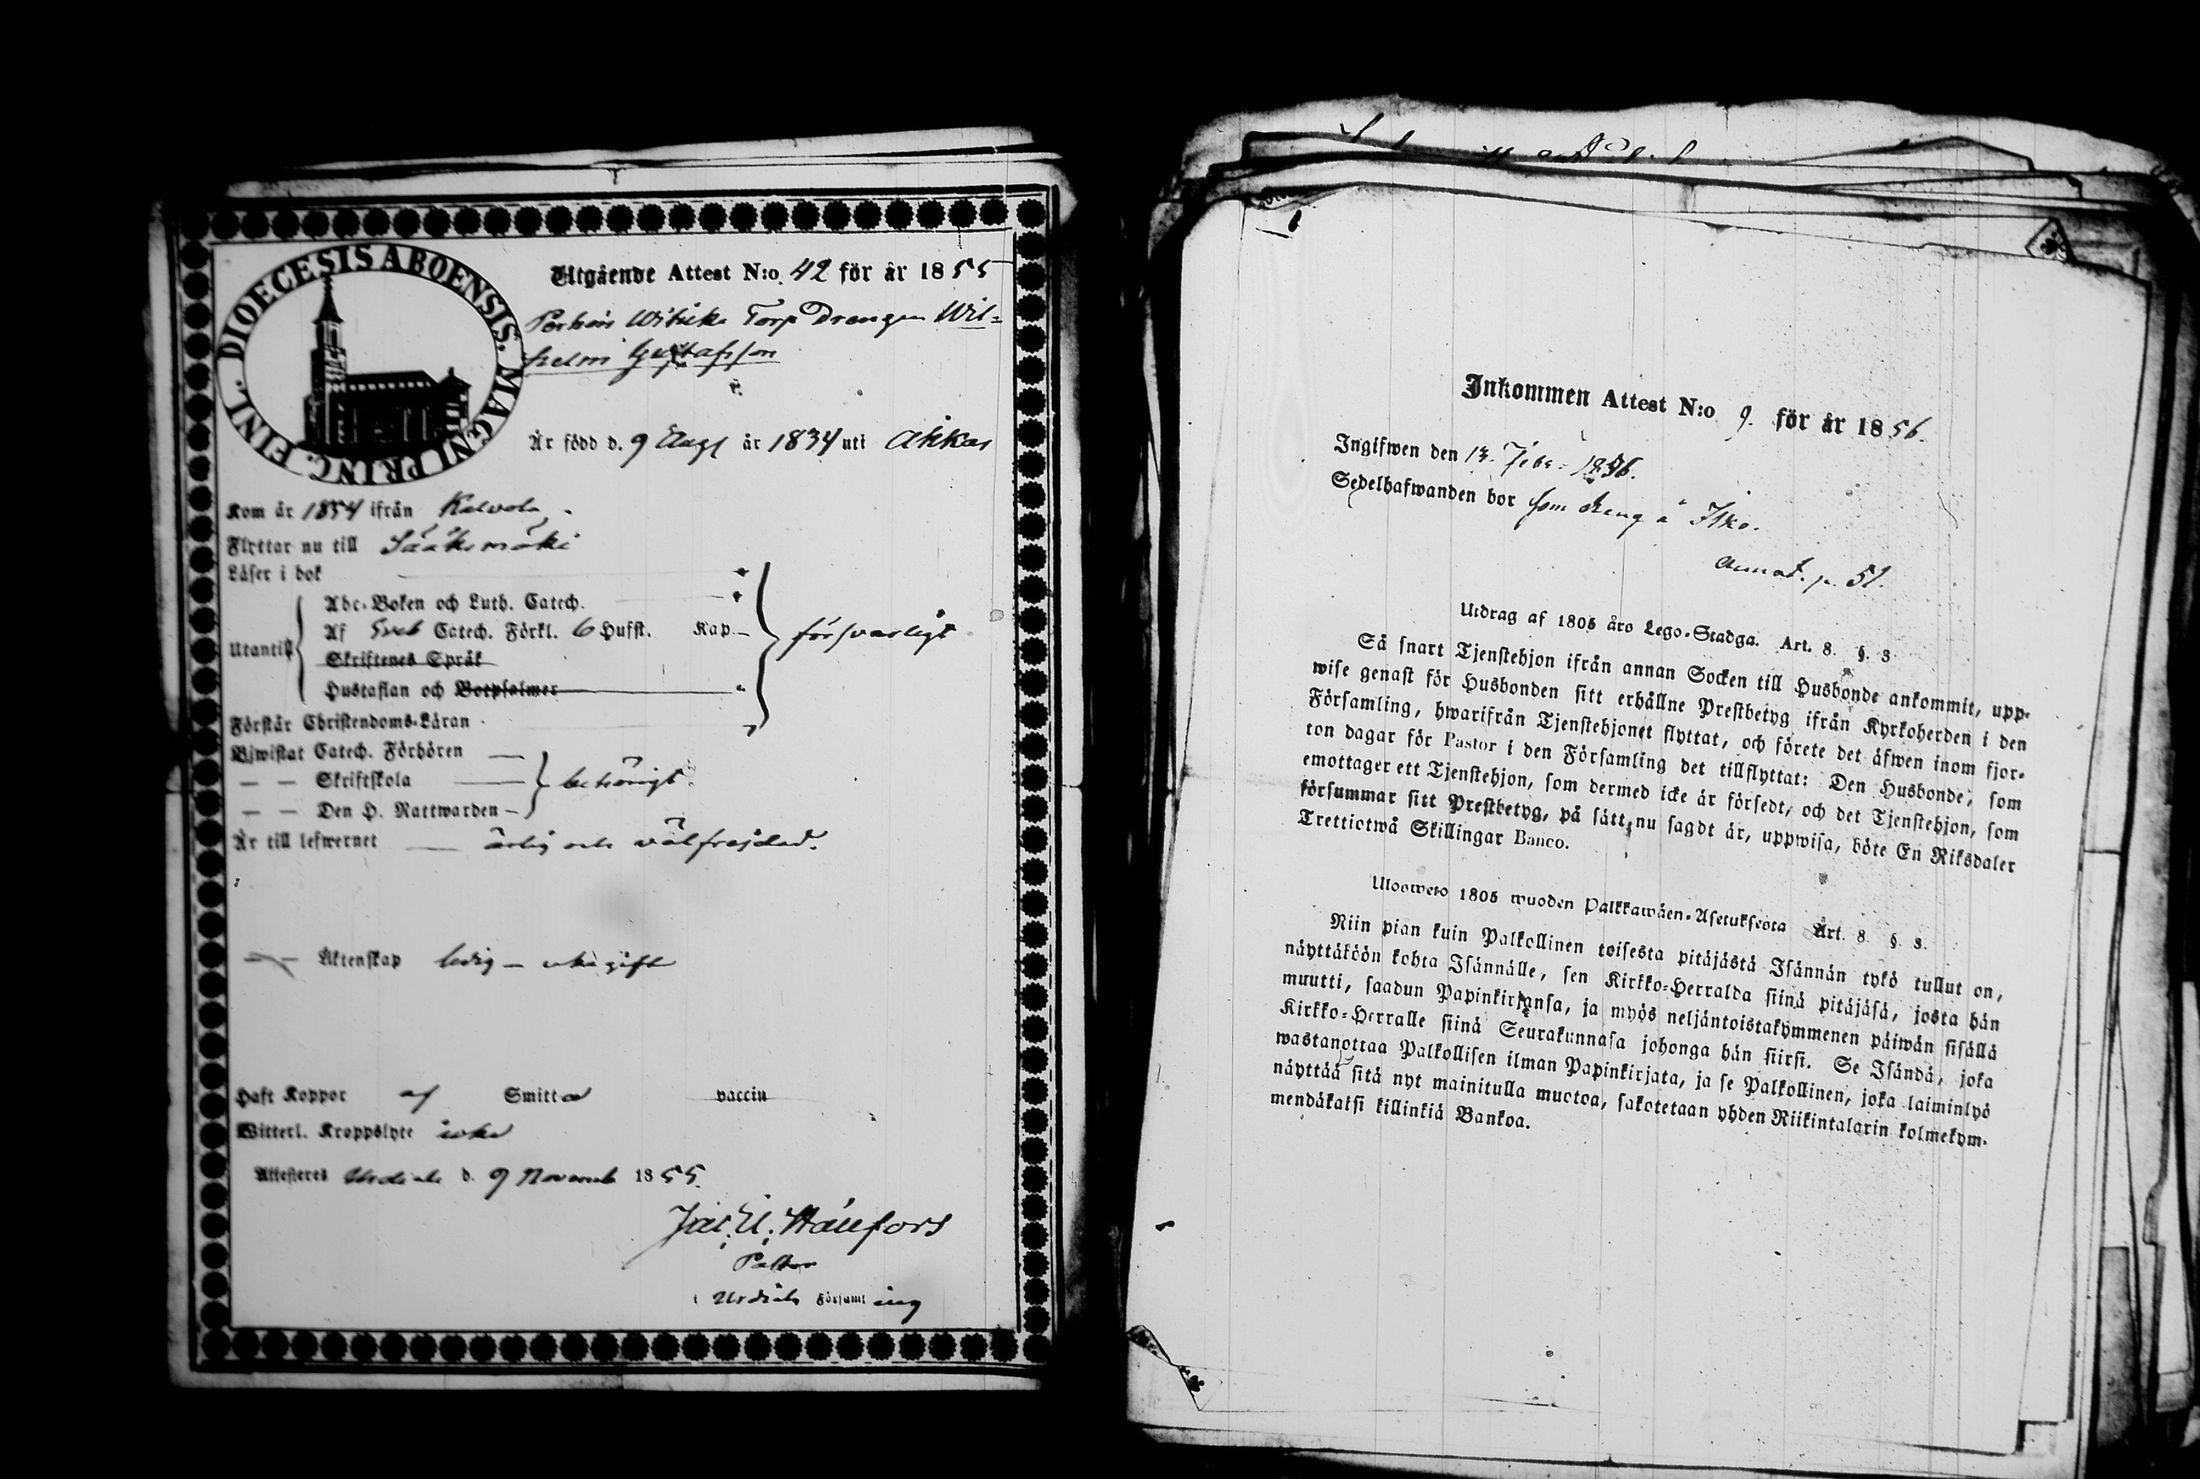 DIOECESIS ABOENSIS. MAGNI PRINC. FINL.
Utgående Attest N:o 42 för år 1855
Torp Drengen Wil-
helm Gustafsson
Är född d. 9 Aug år 1834 uti Akkas
Kom år 1854 ifrån Kalvola
Flyttar nu till Sääksmäki
Läser i bok
Abc-Boken och Luth. Catech.
Utantill
Af Sveb Catech. Förkl. 6 Hufst. Kap
försvarligt
Skriftenes Språk
Hustaflan och Botpsalmer
Förstår Christendoms-Läran
Bjwistat Catech. Förhören —
— — Skriftskola — behörigt
— — Den H. Nattwarden —
Är till lefwernet — ärlig och välfrejdad.
— — Äktenskap ledig —
Haft Koppor af Smitta vaccin
Witterl. Kroppslyte icke
Attesteres Urdiala d. 9 Novemb 1855
Pastor
i Urdiala Församling
Inkommen Attest N:o 9. för år 1856.
Ingifwen den 13. Febr. 1856.
Sedelhafwanden bor som dreng å Isko.
annot. p. 51.
Utdrag af 1805 års Lego-Stadga. Art. 8. §. 3
Så snart Tjenstehjon ifrån annan Socken till Husbonde ankommit, upp-
wise genast för Husbonden sitt erhållne Prestbetyg ifrån Kyrkoherden i den
Församling, hwarifrån Tjenstehjonet flyttat, och förete det äfwen inom fjor-
ton dagar för Pastor i den Församling det tillflyttat: Den Husbonde, som
emottager ett Tjenstehjon, som dermed icke är försedt, och det Tjenstehjon, som
försummar sitt Prestbetyg, på sätt nu sagdt är, uppwisa, böte En Riksdaler
Trettiotwå Skillingar Banco.
Ulosweto 1805 wuoden Palkkawäen-Asetuksesta Art. 8 §. 3.
Niin pian kuin Palkollinen toisesta pitäjästä Isännän tykö tullut on,
näyttäköön kohta Isännälle, sen Kirkko-Herralda siinä pitäjäsä, josta hän
muutti, saadun Papinkirjansa, ja myös neljäntoistakymmenen päiwän sisällä
Kirkko-Herralle siinä Seurakunnasa johonga hän siirsi. Se Isändä, joka
wastanottaa Palkollisen ilman Papinkirjata, ja se Palkollinen, joka laiminlyö
näyttää sitä nyt mainitulla muotoa, sakotetaan yhden Riikintalarin kolmekym-
mendäkaksi killinkiä Bankoa.